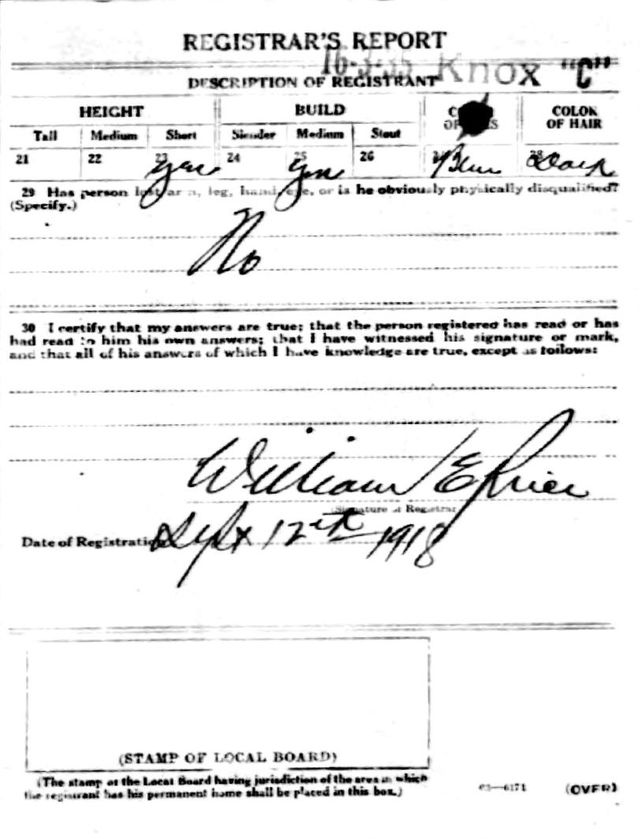 REGISTRAR'S REPORT
16-3-35 Knox "C"
DESCRIPTION OF REGISTRANT
HEIGHT BUILD COLOR OF HAIR
Tall Medium Short Slender Medium Stout
21 22 23 yes 24 25 yes 26 Blue 28 Dark
29 Has person lost arm, leg, hand, eye, or is he obviously physically disqualified?
(Specify.)
No
30 I certify that my answers are true; that the person registered has read or has
had read to him his own answers; that I have witnessed his signature or mark,
and that all of his answers of which I have knowledge are true, except as follows:
William E
Signature of Registrar
Date of Registration Sept 12th 1918
(STAMP OF LOCAL BOARD)
(The stamp of the Local Board having jurisdiction of the area in which
the registrant has his permanent home shall be placed in this box.)
03—6171 (OVER)